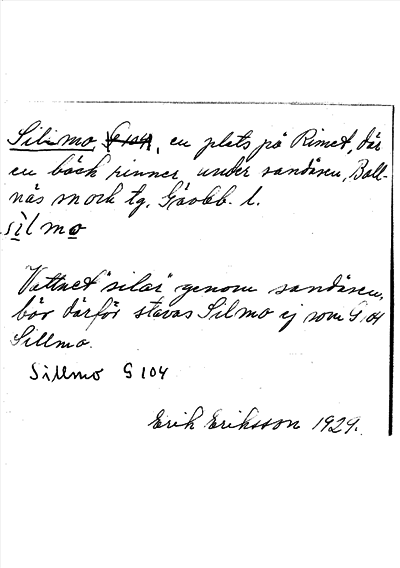 Silmo, G 104, en plats på Rimet, där
en bäck rinner under sandåsen, Boll-
näs sn och tg. Gävlb. l.
sìlmo
Vattnet "silar" genom sandåsen,
bör därför stavas Silmo ej som G 104
Sillmo.
Sillmo G 104
Erik Eriksson 1929.